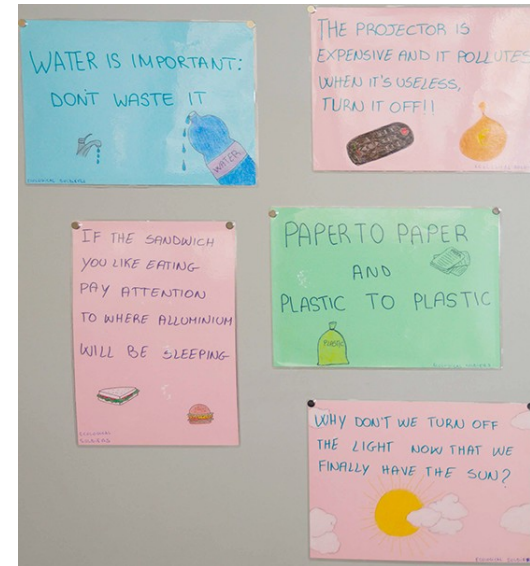 WATER IS IMPORTANT:
DON'T WASTE IT
WATER
THE PROJECTOR IS
EXPENSIVE AND IT POLLUTES
WHEN IT'S USELESS,
TURN IT OFF!!
IF THE SANDWICH
YOU LIKE EATING
PAY ATTENTION
TO WHERE ALLUMINIUM
WILL BE SLEEPING
PAPER TO PAPER
AND
PLASTIC TO PLASTIC
PLASTIC
WHY DON'T WE TURN OFF
THE LIGHT NOW THAT WE
FINALLY HAVE THE SUN?